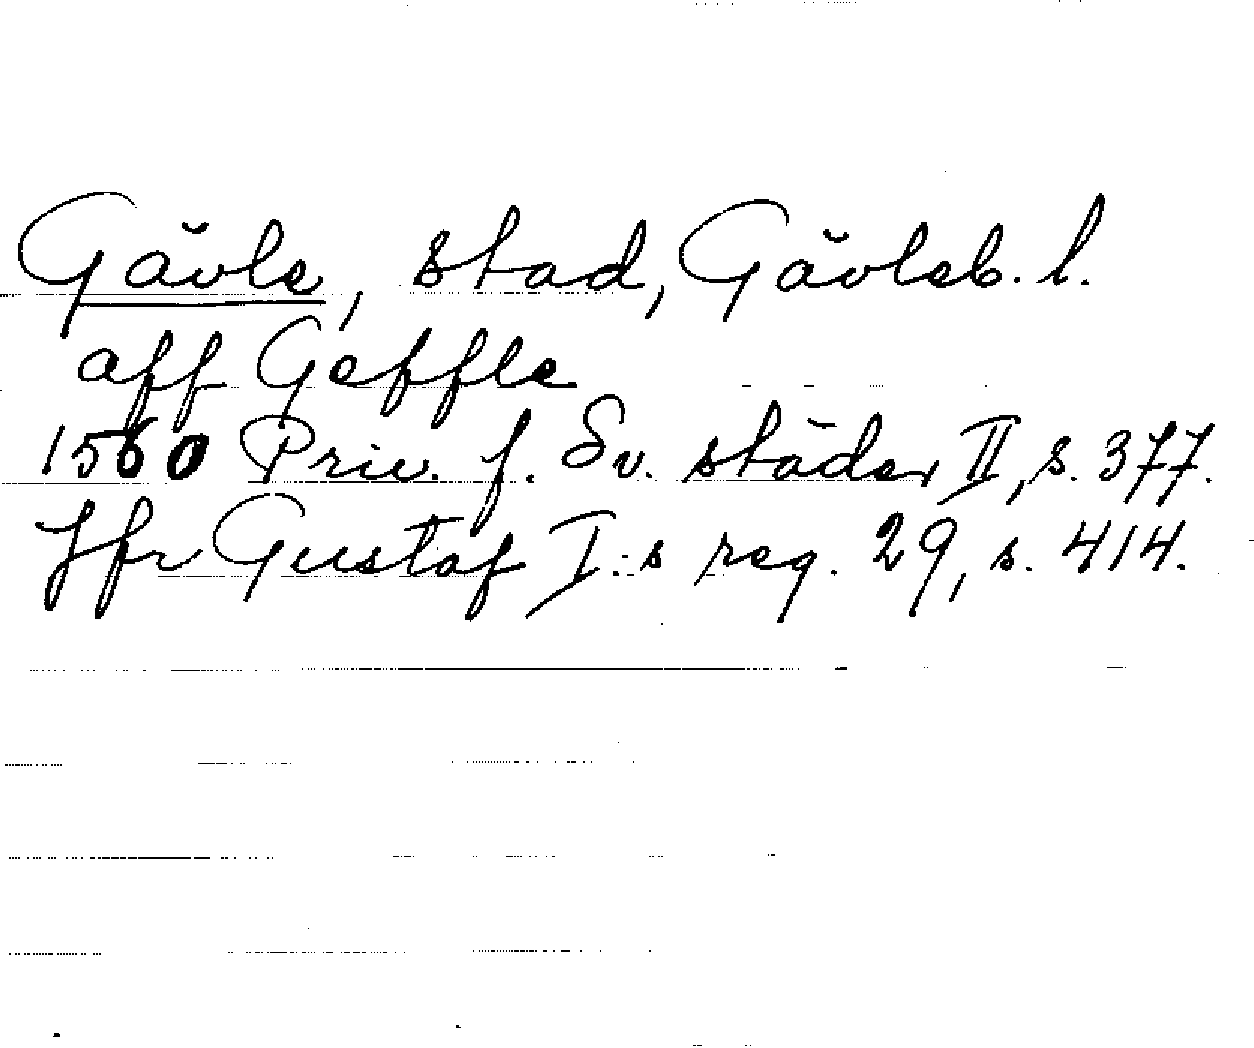 Gävle, stad, Gävleb. l.
aff Geffle
1560 Priv. f. Sv. städer II, s. 377.
Jfr Gustaf I:s reg. 29, s. 414.